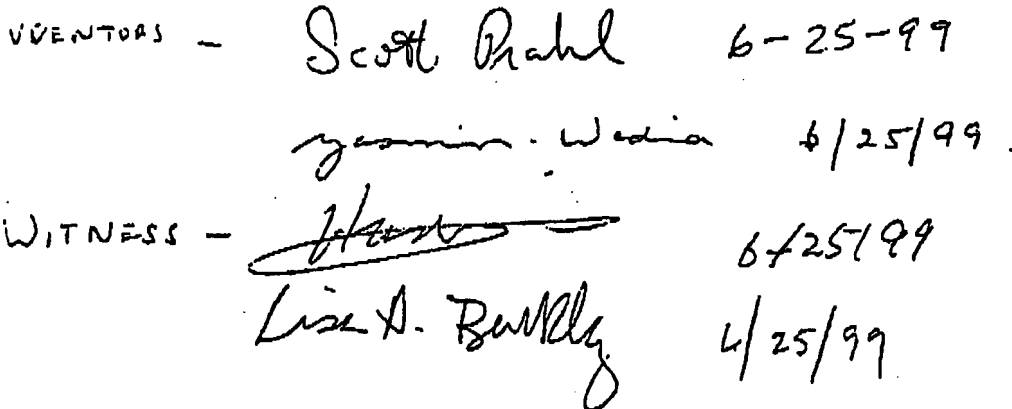 VVENTORS - Scott Prahl 6-25-99
Yasmin. Wadia 6/25/99.
WITNESS - 6/25/99
Lisa A. 6/25/99